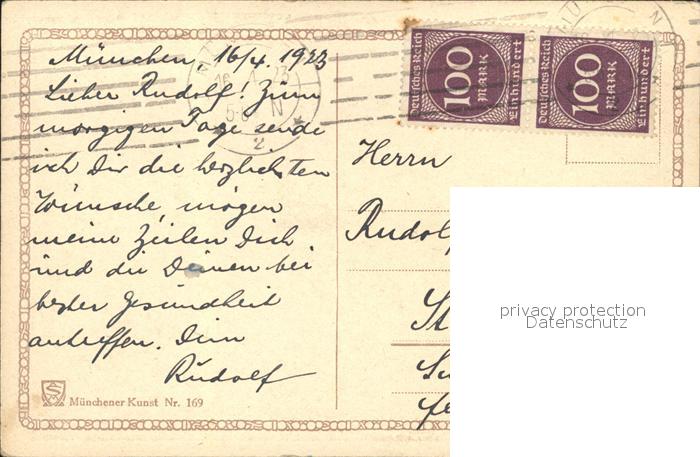 München, 16/4. 1923
Lieber Rudolf! Zum
morgigen Tage sende
ich Dir die herzlichsten
Wünsche, mögen
meine Zeilen Dich
und die Deinen bei
bester Gesundheit
antreffen. Dein
Rudolf
Münchener Kunst Nr. 169
Deutsches Reich
100
MARK
Einhundert
Deutsches Reich
100
MARK
Einhundert
Herrn
Rudolf
St
privacy protection
Datenschutz